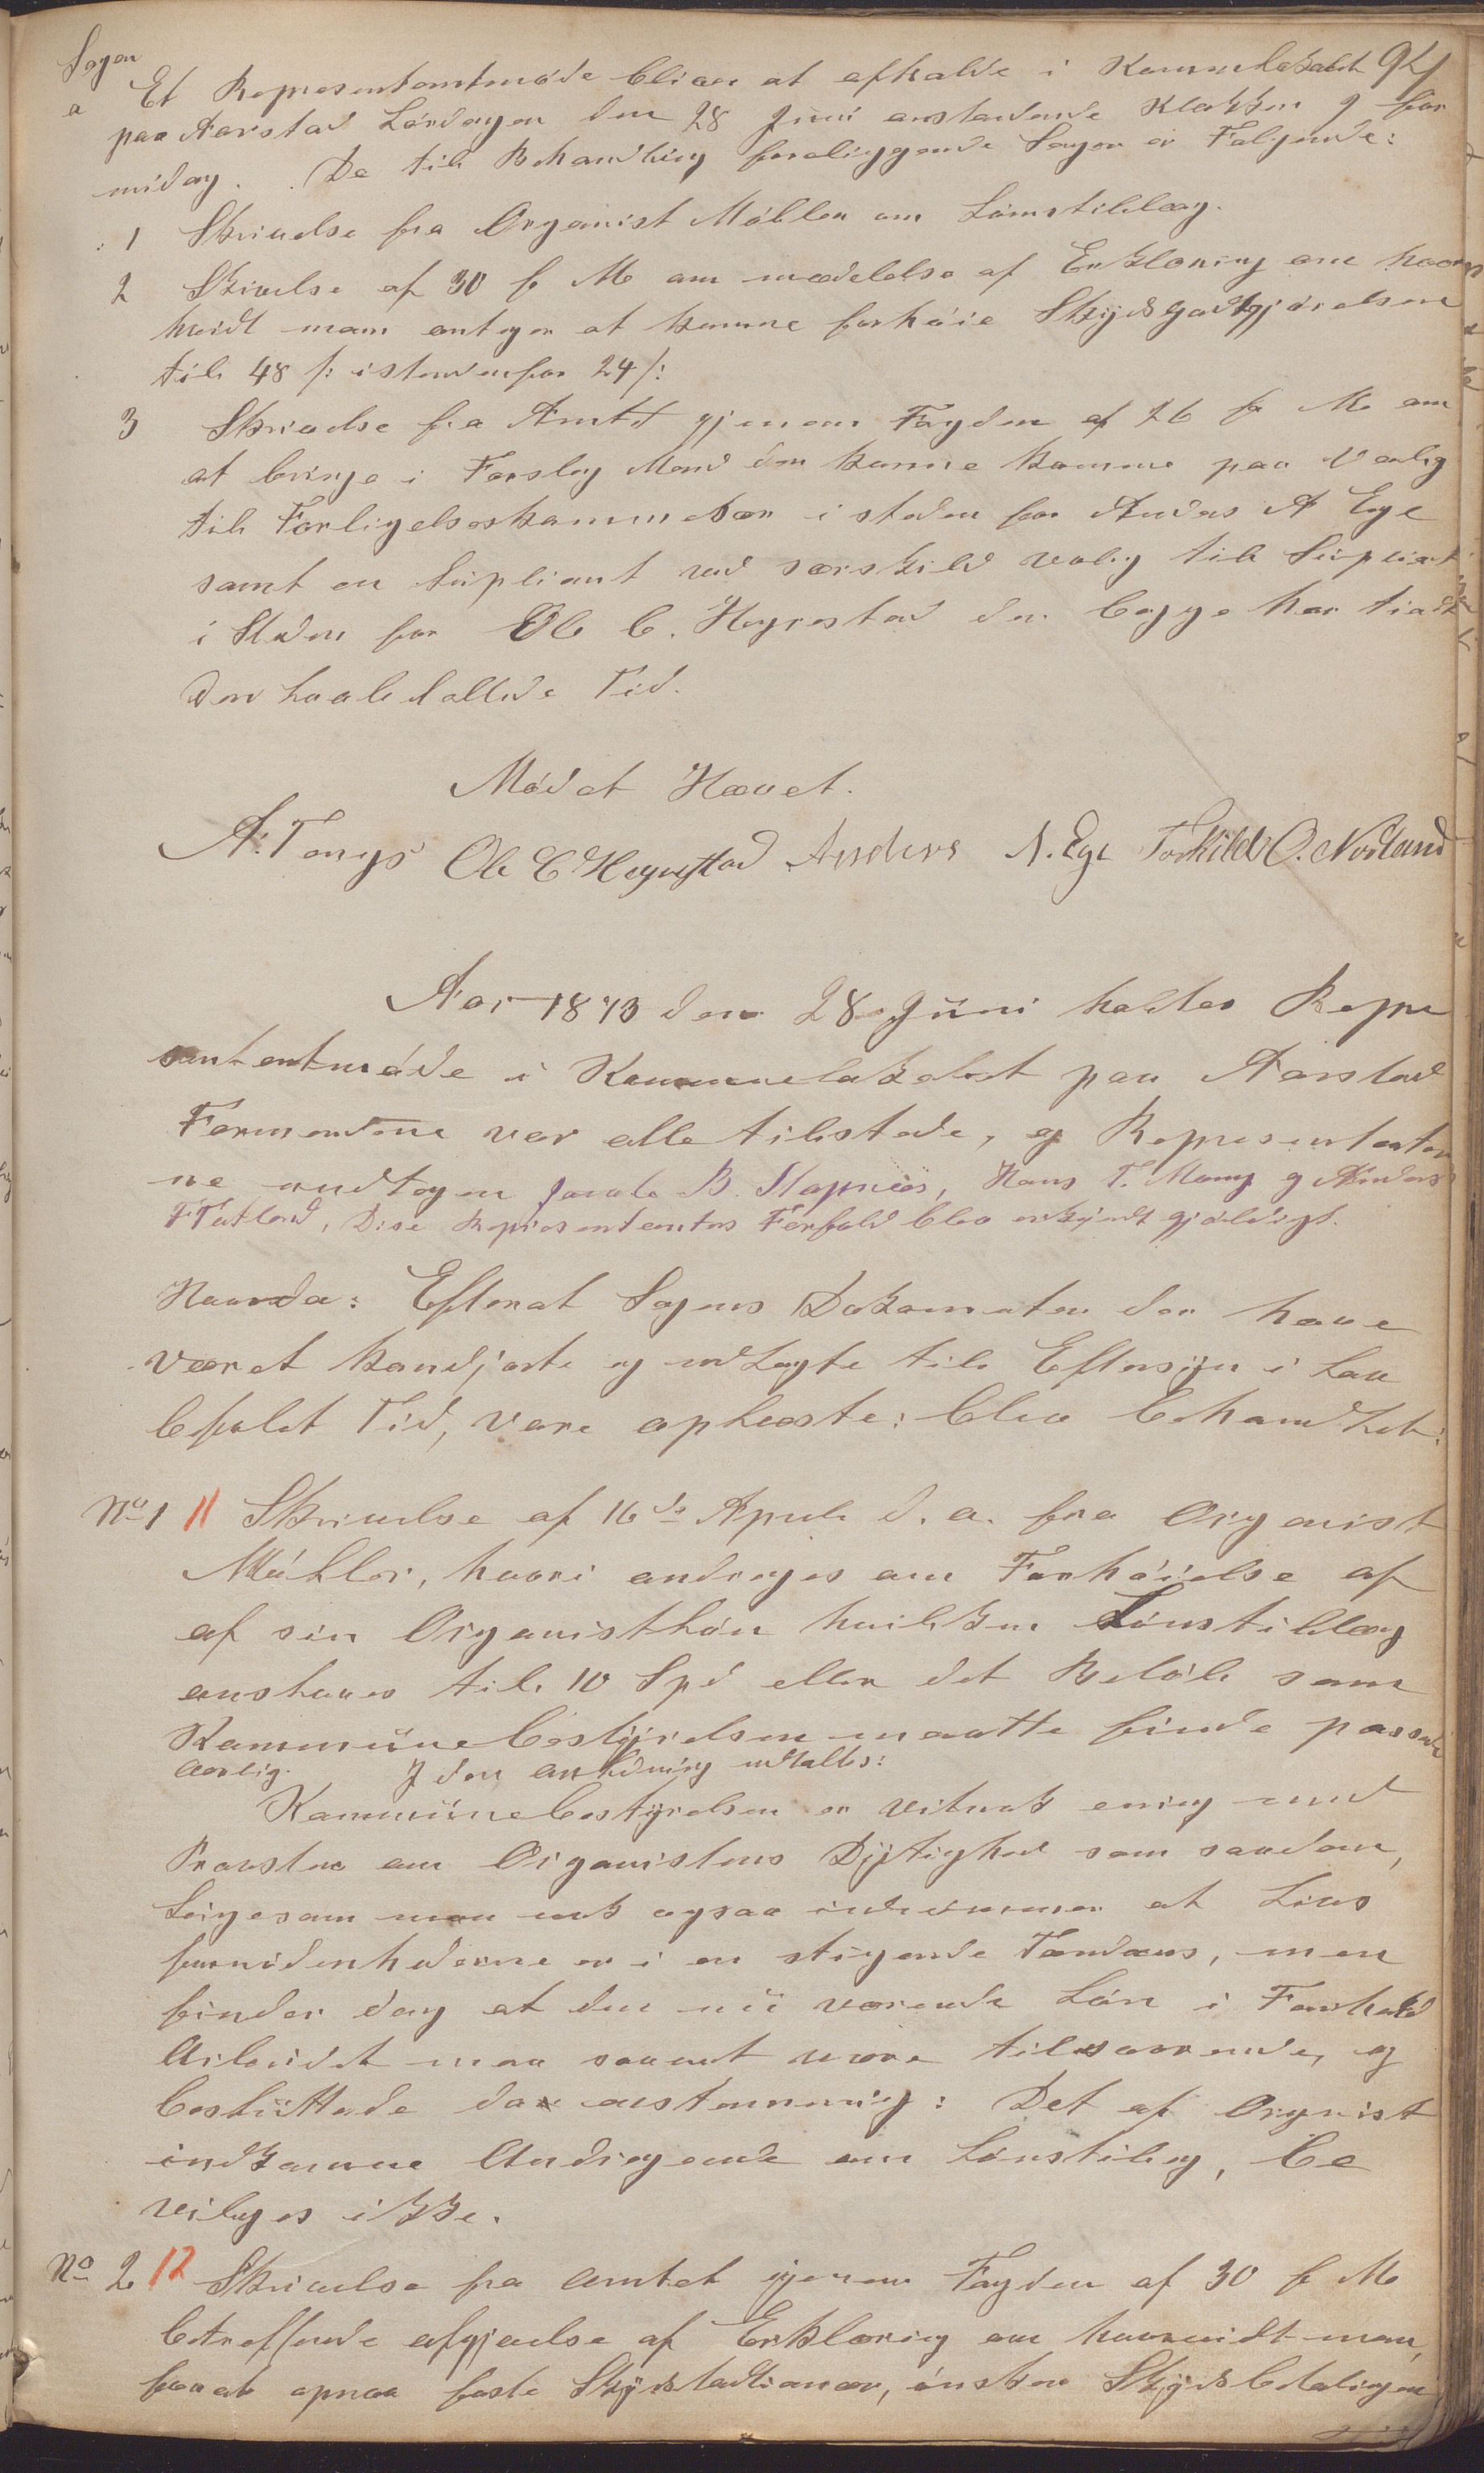 Sagen 94
a Et Representantmøde bliver at afholde i Kommulokalet
paa Aarstad Lørdagen den 28 Juni anstaaende Klokken 9 for
midag. De til Behandling foreliggende Sager er Følgende:
1 Skrivelse fra Organist Møller om Lønstillæg.
2 Skrivelse af 30 f. M. om meddelelse af Erklæring om hvor
hvidt man antager at kunne forhøie Skydsgodtgjørelsen
til 48 /: istedenfor 24 /:
3 Skrivelse fra Amtet gjennem Fogden af 26 f. M. om
at bringe i Forslag Mænd der kunne komme paa Valg
til Forligelseskommisær i steden for Anders A Ege
samt en Supliant ved særskild valg til Supliant
i Steden for Ole C. Hegrestad der begge har tiadt
den lovbefallede Tid.
Mødet Hævet.
A. Tengs Ole C Hegrestad Anders A. Ege Torkild O. Nodland
Aar 1873 den 28 Juni holdtes Repre
sentantmøde i Kommunelokalet paa Aarstad
Formændene var alle tilstede, og Representanter
ne undtagen Jacob B. Slapnes, Hans T. Mong og Anders
T Tatland, Disse Representanters Forfald blev erkjendt gjældigt.
Hvorda: Efterat Sagens Dokumenter der have
været kundjorte og udlagte til Eftersyn i Lov
befalet Tid, vare oplæste: blev behandlet:
No 1 11 Skrivelse af 16de April d. a. fra Organist
Møller, hvori andrages om Forhøielse af
af sin Organistløn hvilken Lønstillæg
anskaues til 10 Spd eller det Beløb som
Kommünebestyrelsen maatte finde passende
aarlig. I den anledning udtaltes:
Kommünebestyrelsen er vitnok enig med
Provsten om Organistens Dygtighed som saadan,
Ligesom man nok ogsaa indrømmer at Livs
fornødenhederne er i en stigende Tendens, men
finder dog at den nü værende Løn i Forhold
Arbeidet maa saavidt være tilsvarende, og
besluttede da enstemmig: Det af Organist
indkomne Andragende om Lønstilleg, be
vilges ikke.
No 2 12 Skrivelse fra Amtet gjenem Fogden af 30 f. M.
betreffende afgivelse af Erklæring om hvorvidt man,
for at opnaa faste Skydsstationer, ønsker Skydsbetalingen